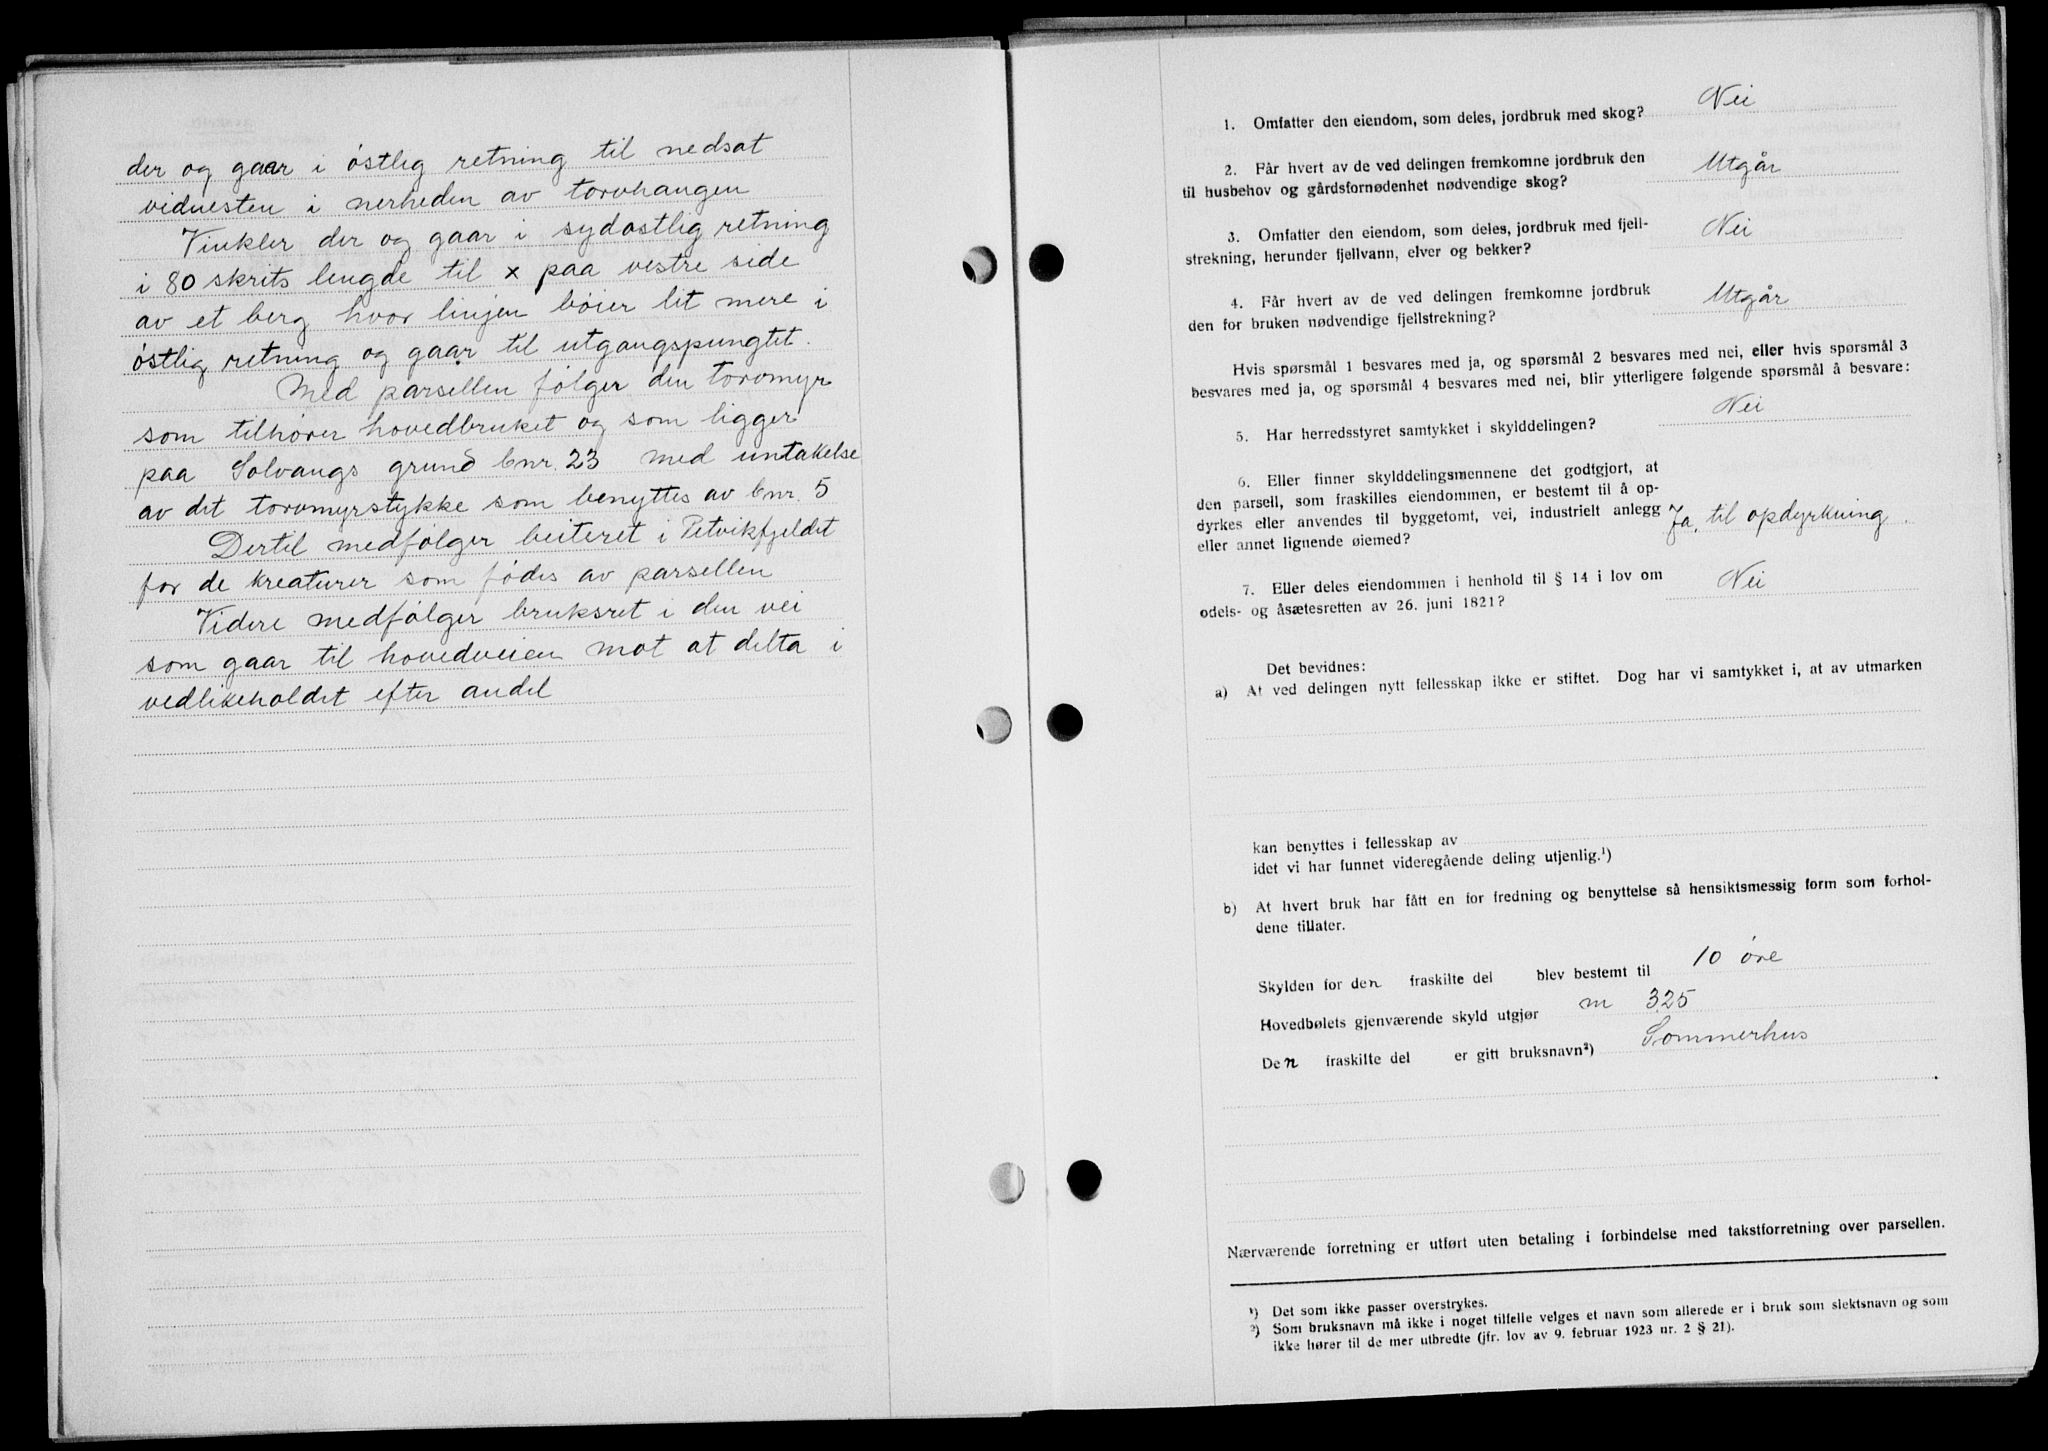 der og gaar i östlig retning til nedsat
vidnesten i nerheden av torvhaugen
Vinkler der og gaar i sydostlig retning
i 80 skrits lengde til x paa vestre side
av et berg hvor linjen böier lit mere i
östlig retning og gaar til utgangspungtet.
Med parsellen fölger den torvmyr
som tilhörer hovedbruket og som ligger
paa Solvangs grund bnr. 23 med untakelse
av det torvmyrstykke som benyttes av bnr. 5
Dertil medfölger beiteret i Petvikfjeldet
for de kreaturer som födes av parsellen
Videre medfölger bruksret i den vei
som gaar til hovedveien mot at delta i
vedlikeholdet efter andel
1. Omfatter den eiendom, som deles, jordbruk med skog? Nei
2. Får hvert av de ved delingen fremkomne jordbruk den
til husbehov og gårdsfornødenhet nødvendige skog? Utgår
3. Omfatter den eiendom, som deles, jordbruk med fjell-
strekning, herunder fjellvann, elver og bekker? Nei
4. Får hvert av de ved delingen fremkomne jordbruk
den for bruken nødvendige fjellstrekning? Utgår
Hvis spørsmål 1 besvares med ja, og spørsmål 2 besvares med nei, eller hvis spørsmål 3
besvares med ja, og spørsmål 4 besvares med nei, blir ytterligere følgende spørsmål å besvare:
5. Har herredsstyret samtykket i skylddelingen? Nei
6. Eller finner skylddelingsmennene det godtgjort, at
den parsell, som fraskilles eiendommen, er bestemt til å op-
dyrkes eller anvendes til byggetomt, vei, industrielt anlegg
eller annet lignende øiemed? Ja, til opdyrkning.
7. Eller deles eiendommen i henhold til § 14 i lov om
odels- og åsætesretten av 26. juni 1821? Nei
Det bevidnes:
a) At ved delingen nytt fellesskap ikke er stiftet. Dog har vi samtykket i, at av utmarken
kan benyttes i fellesskap av
idet vi har funnet videregående deling utjenlig.¹)
b) At hvert bruk har fått en for fredning og benyttelse så hensiktsmessig form som forhol-
dene tillater.
Skylden for den fraskilte del blev bestemt til 10 öre
Hovedbølets gjenværende skyld utgjør m 3.25
Den fraskilte del er gitt bruksnavn²) Sommerhus
Nærværende forretning er utført uten betaling i forbindelse med takstforretning over parsellen.
¹) Det som ikke passer overstrykes.
²) Som bruksnavn må ikke i noget tilfelle velges et navn som allerede er i bruk som slektsnavn og som
ikke hører til de mer utbredte (jfr. lov av 9. februar 1923 nr. 2 § 21).